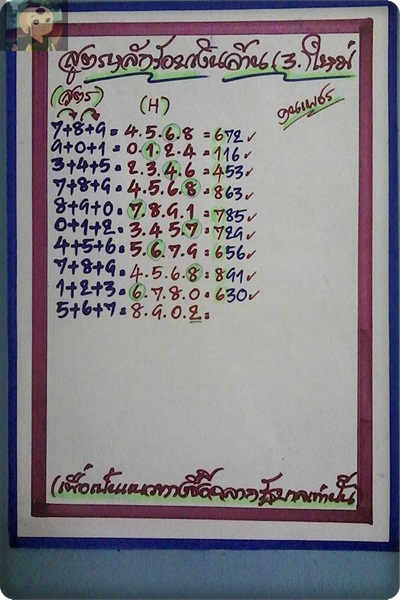 สูตรหลักร้อยเงินล้าน (3.ใหม่
(สูตร) (H) ขุนเพชร
7+8+9 = 4.5.6.8 = 672 ✓
9+0+1 = 0.1.2.4 = 116 ✓
3+4+5 = 2.3.4.6 = 453 ✓
7+8+9 = 4.5.6.8 = 863 ✓
8+9+0 = 7.8.9.1 = 785 ✓
0+1+2 = 3.4.5.7 = 729 ✓
4+5+6 = 5.6.7.9 = 656 ✓
7+8+9 = 4.5.6.8 = 891 ✓
1+2+3 = 6.7.8.0 = 630 ✓
5+6+7 = 8.9.0.2 =
(เพื่อเป็นแนวทางซื้อสลากรัฐบาลเท่านั้น